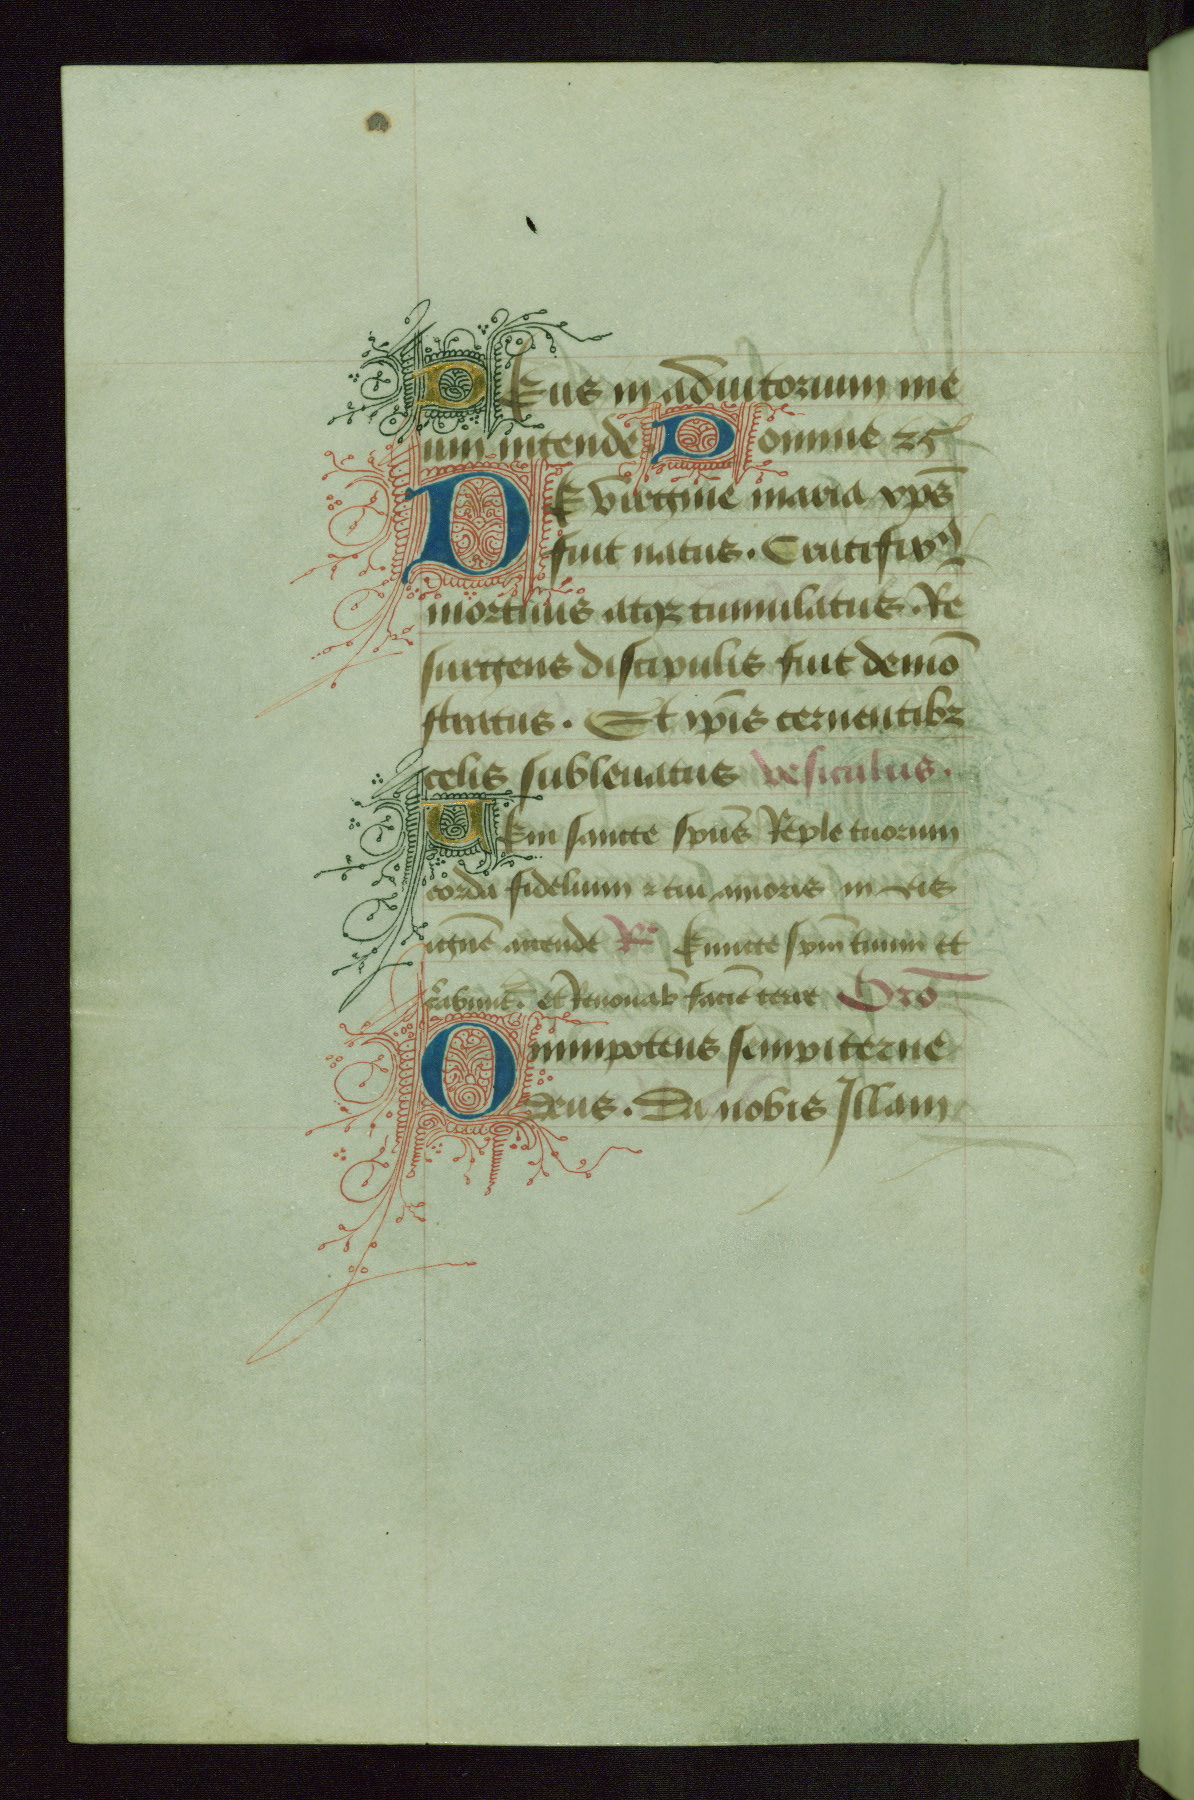 DEus in adiutorium me
um intende Domine 2c
DE virgine maria xp̄s
fuit natus. Crucifixꝰ
mortuus atqꝫ tumulatus. Re
surgens discipulis fuit demō
stratus. Et ip̄is cernentibꝫ
celis subleuatus vesiculus.
UEni sancte sp̄us Reple tuorum
corda fidelium ⁊ tui amoris in eis
ignē accende R͞ Emitte sp̄m tuum et
c͛abunt̄. et Renouab faciē terre Oro͞
Omnipotens sempiterne
deus. Da nobis Illam